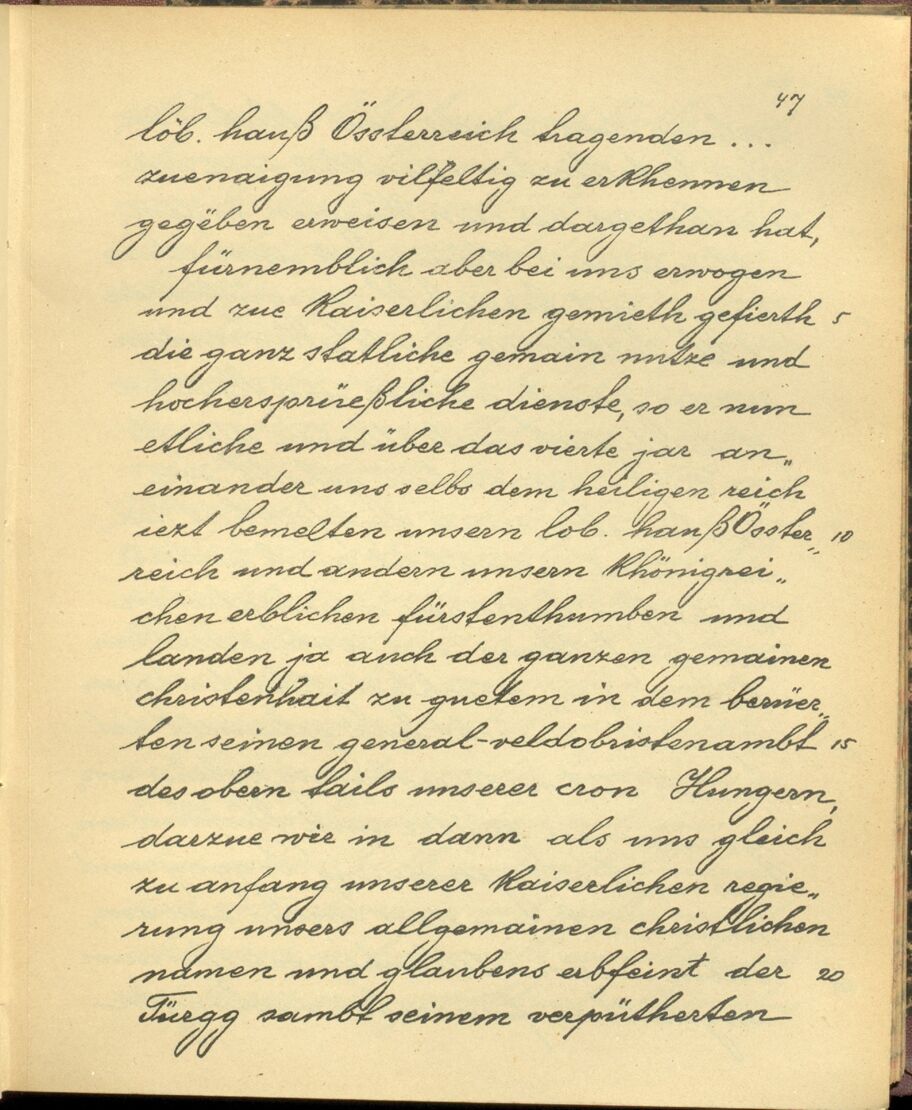 47
löb. hauß Össterreich tragenden ...
zuenaigung vilfeltig zu erkhennen
gegëben erweisen und dargethan hat,
fürnemblich aber bei uns erwogen
und zue kaiserlichen gemieth gefierth 5
die ganz statliche gemain nutze und
hochersprüeßliche dienste, so er nun
etliche und über das vierte jar an„
einander uns selbs dem heiligen reich
iezt bemelten unsern lob. haußÖsster„ 10
reich und andern unsern khönigrei„
chen erblichen fürstenthumben und
landen ja auch der ganzen gemainen
christenhait zu guetem in dem berüer„
ten seinen general-veldobristenambt 15
des obern tails unserer cron Hungern,
darzue wir in dann als uns gleich
zu anfang unserer kaiserlichen regie„
rung unsers allgemainen christlichen
namen und glaubens erbfeint der 20
Türgg sambt seinem verpütherten